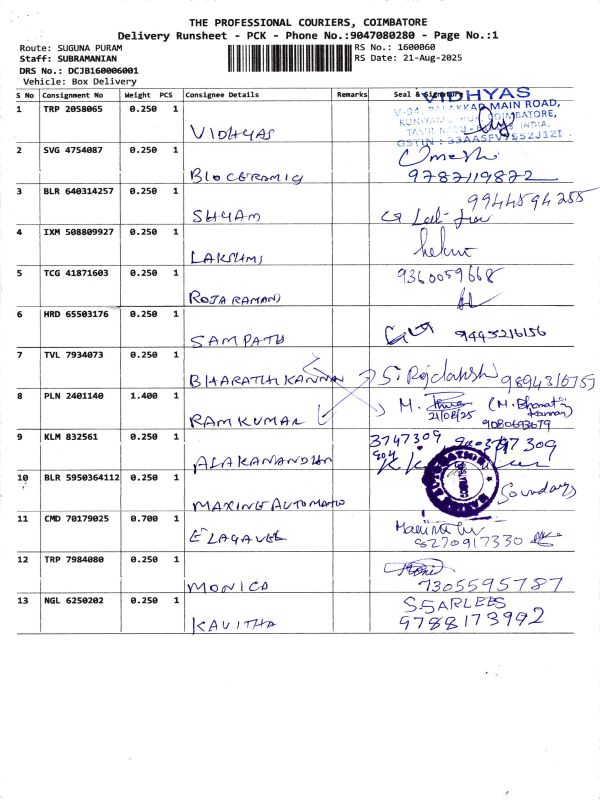 THE PROFESSIONAL COURIERS, COIMBATORE
Delivery Runsheet - PCK - Phone No.:9047080280 - Page No.:1
Route: SUGUNA PURAM RS No.: 1600060
Staff: SUBRAMANIAN RS Date: 21-Aug-2025
DRS No.: DCJB160006001
Vehicle: Box Delivery
S No Consignment No Weight PCS Consignee Details Remarks Seal & Signature
VIDHYAS
MAIN ROAD,
1 TRP 2058065 0.250 1
COIMBATORE,
TAMIL NADU INDIA.
VIDHYAS
2 SVG 4754087 0.250 1 Omesh
BIOCERAMIC 9787119822
3 BLR 640314257 0.250 1 9944594255
SHYAM
4 IXM 508809927 0.250 1
LAKSHMI
5 TCG 41871603 0.250 1 9360059668
ROJARAMANI
6 HRD 65503176 0.250 1
SAMPATH 9443216156
7 TVL 7934073 0.250 1
BHARATHKANNAN S. Rajdakshi
8 PLN 2401140 1.400 1 M. 21/08/25 (M. Bharath Kannan)
RAMKUMAR 9080693679
9 KLM 832561 0.250 1 3747309
ALAKANANDHA
10 BLR 5950364112 0.250 1
MAXINE AUTOMATIO Soundary
11 CMD 70179025 0.700 1
ELAGAVEL 8270917330
12 TRP 7984080 0.250 1
MONICA 7305595787
13 NGL 6250202 0.250 1 S.SARLEES
KAVITHA 9788173992